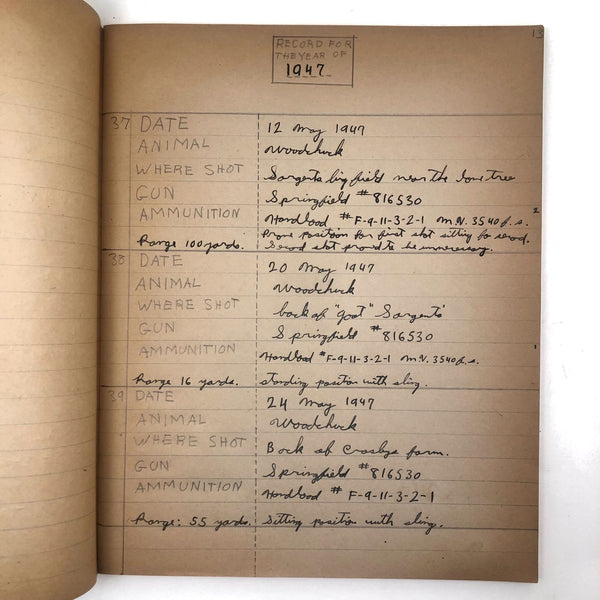 13
RECORD FOR
THE YEAR OF
1947
37 DATE 12 May 1947
ANIMAL Woodchuck
WHERE SHOT Sargents big field near the lone tree
GUN Springfield # 816530
AMMUNITION Handload # F-9-11-3-2-1 M.V. 3540 f.s. 2
Range 100 yards. Prone position for first shot sitting for second.
Second shot proved to be unnecessary.
38 DATE 20 May 1947
ANIMAL Woodchuck
WHERE SHOT back of "goat" Sargents'
GUN Springfield # 816530
AMMUNITION Handload # F-9-11-3-2-1 M.V. 3540 f.s. 1
Range 16 yards. Standing position with sling.
39 DATE 24 May 1947
ANIMAL Woodchuck
WHERE SHOT Back of Crosbys farm.
GUN Springfield # 816530
AMMUNITION Handload # F-9-11-3-2-1
Range: 55 yards. Sitting position with sling.